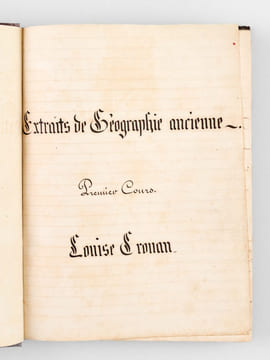 Extraits de Géographie ancienne _.
Premier Cours.
Louise Cronan.